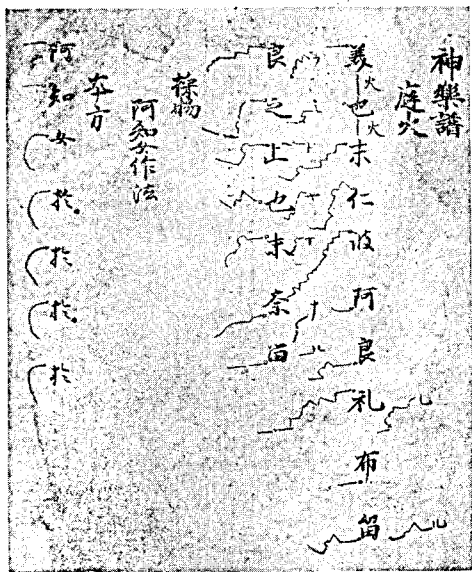 神樂譜
庭火
美火也火末仁波阿良礼布留
良之止也末奈留
採物
阿知女作法
本方
阿知女於於於於